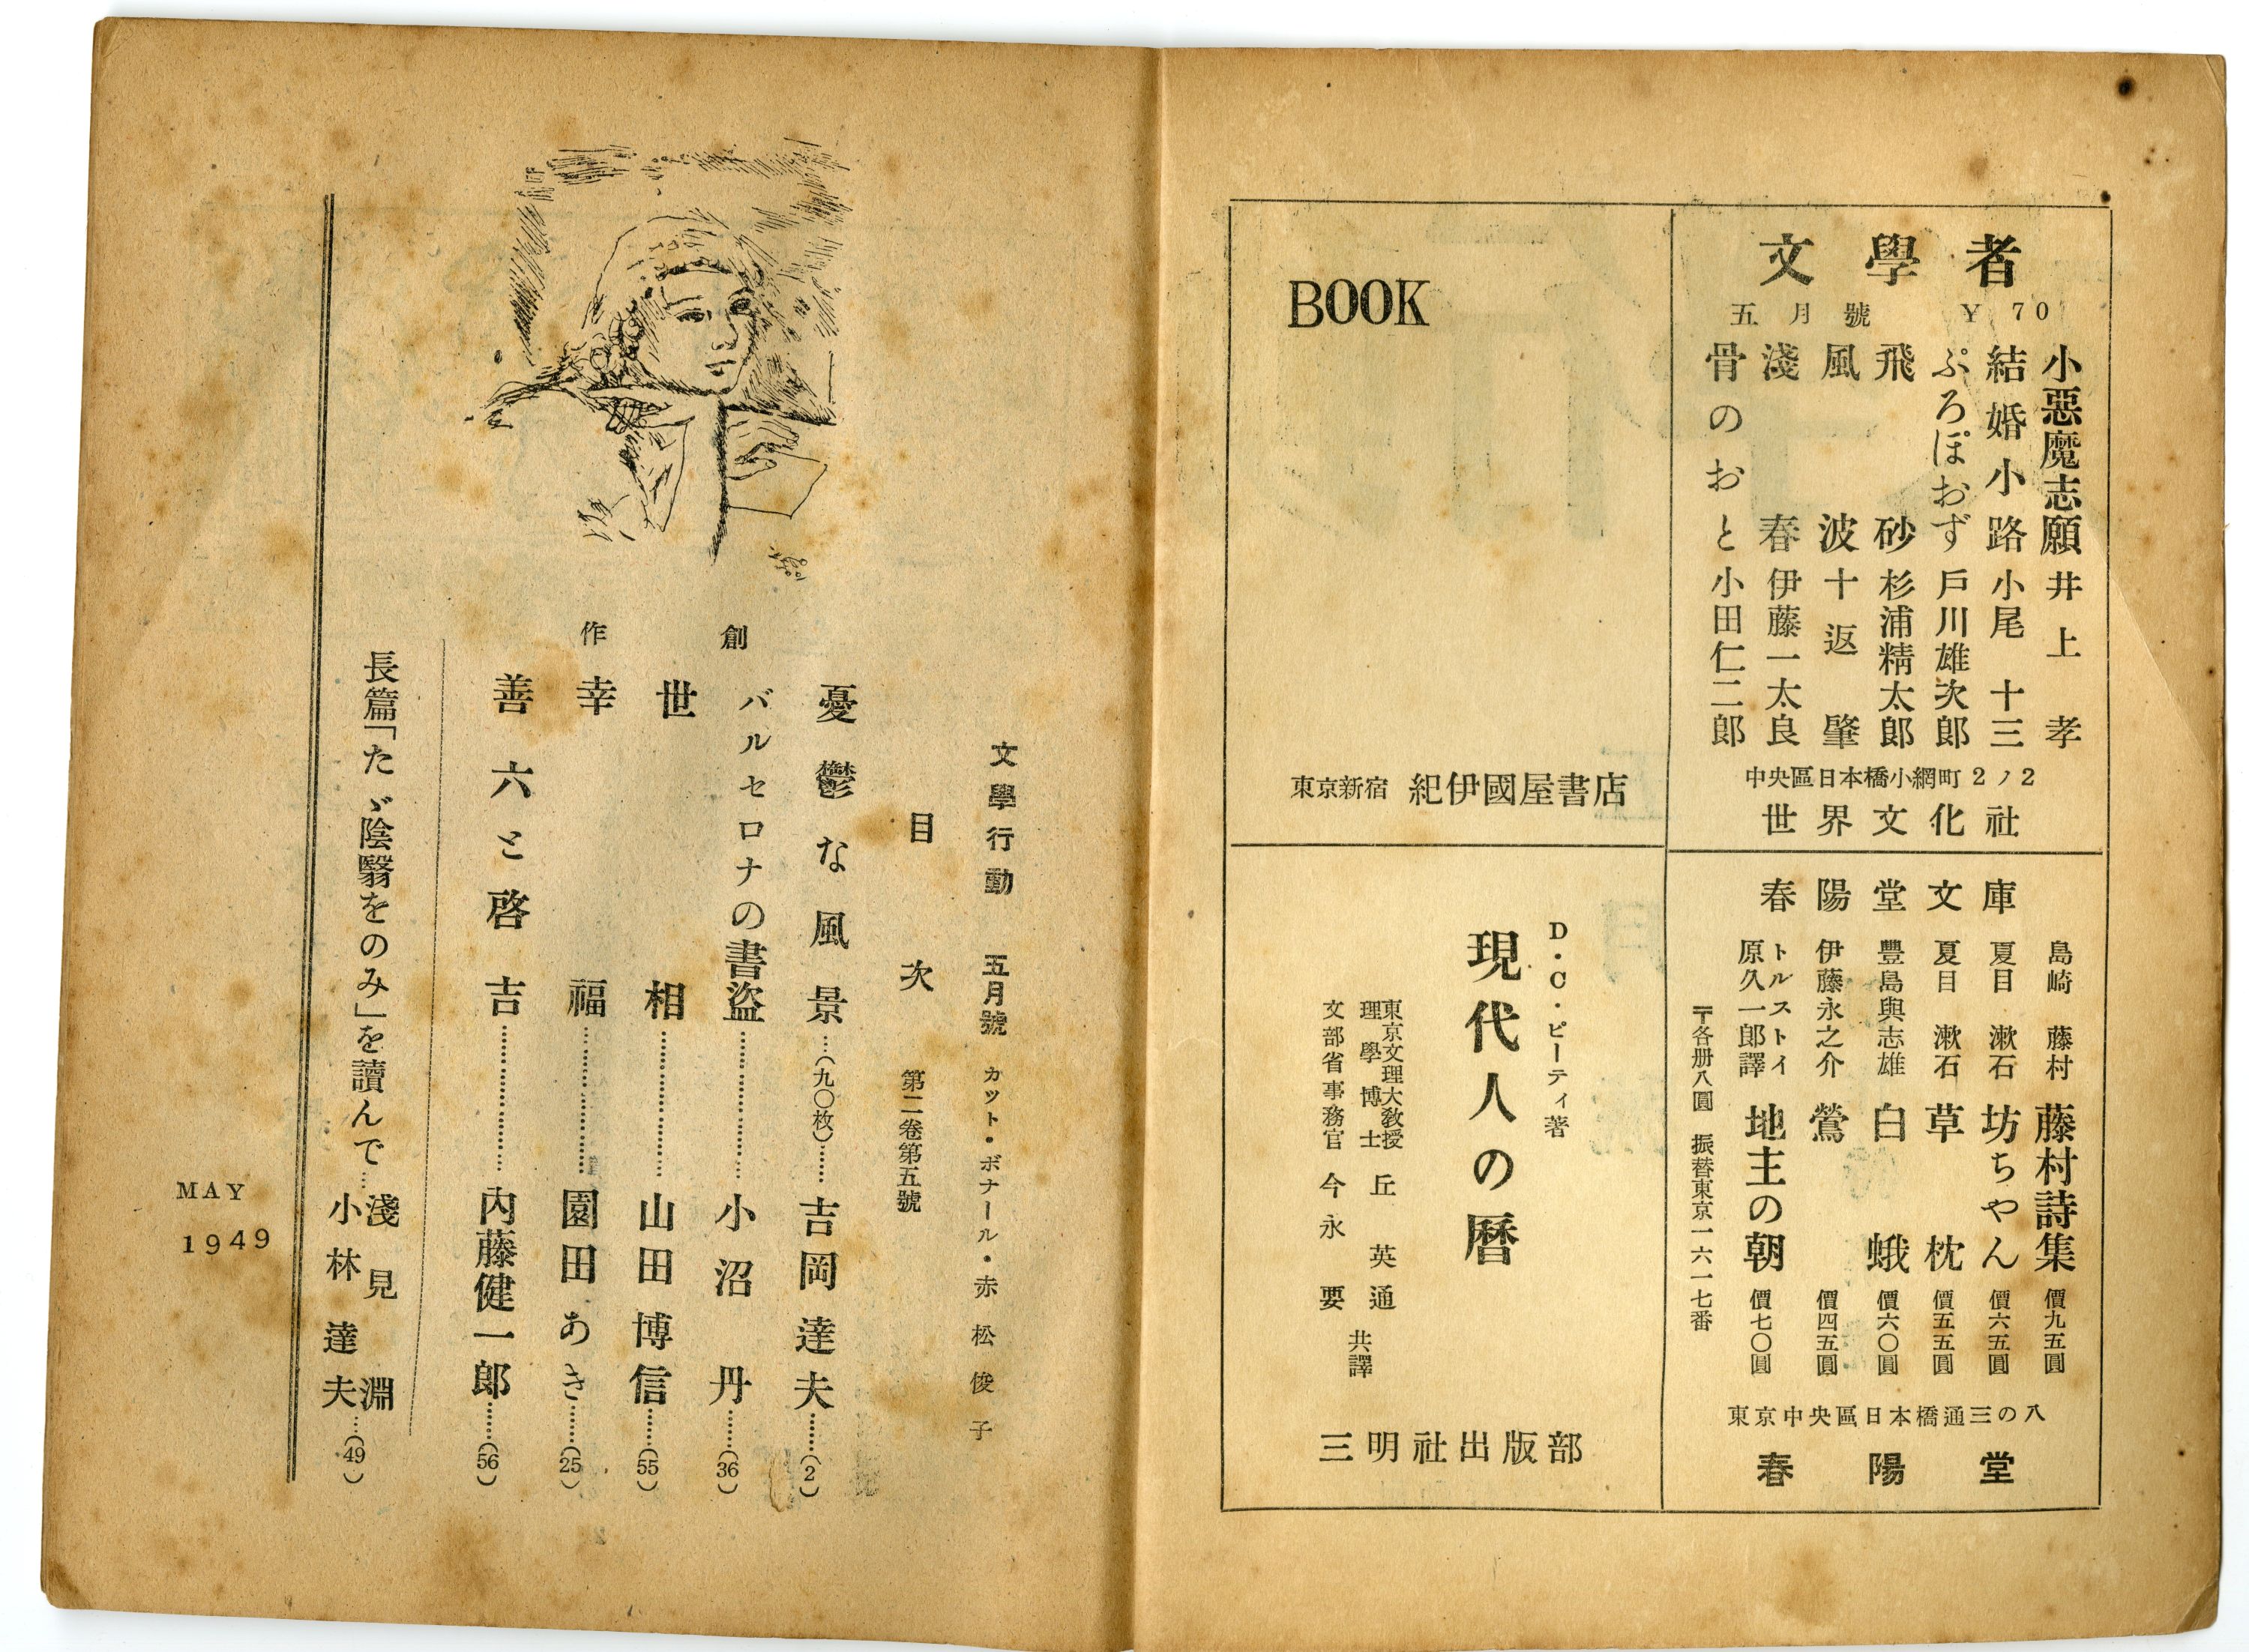 文學者
五月號　Y 70
小惡魔志願　井上孝
結婚小路　小尾十三
ぷろぽおず　戸川雄次郎
飛砂　杉浦精太郎
風波　十返肇
淺春　伊藤一太良
骨のおと　小田仁二郎
中央區日本橋小網町2ノ2
世界文化社
BOOK
東京新宿　紀伊國屋書店
春陽堂文庫
島崎藤村　藤村詩集　價九五圓
夏目漱石　坊ちやん　價六五圓
夏目漱石　草枕　價五五圓
豐島與志雄　白蛾　價六〇圓
伊藤永之介　鶯　價四五圓
トルストイ
原久一郎譯　地主の朝　價七〇圓
〒各册八圓　振替東京一六一七番
東京中央區日本橋通三の八
春陽堂
D・C・ピーティ著
現代人の暦
東京文理大敎授
理學博士　丘英通
文部省事務官　今永要
共譯
三明社出版部
文學行動　五月號　カツト・ボナール・赤松俊子
目次　第二卷第五號
創作
憂鬱な風景…(九〇枚)……吉岡達夫……(2)
バルセロナの書盜………………小沼丹……(36)
世相………………山田博信……(55)
幸福………………園田あき……(25)
善六と啓吉………………內藤健一郎……(56)
長篇「たゞ陰翳をのみ」を讀んで…
淺見淵
小林達夫…(49)
MAY
1949